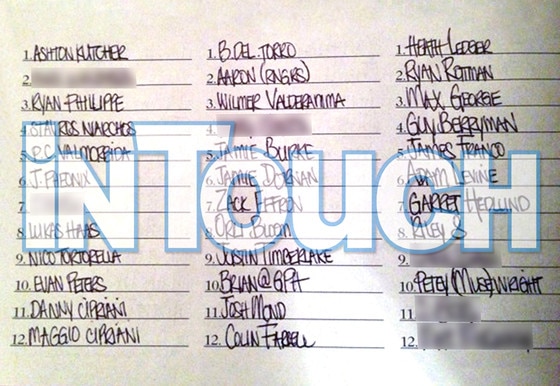 1. ASHTON KUTCHER
2.
3. RYAN PHILIPPE
4. STAVROS NIARCHOS
5. P.C. VALMORBIDA
6. J. PHEONIX
7.
8. LUKAS HAAS
9. NICO TORTORELLA
10. EVAN PETERS
11. DANNY CIPRIANI
12. MAGGIO CIPRIANI
1. B. DEL TORRO
2. AARON (RNGRS)
3. WILMER VALDERAMMA
4.
5. JAMIE BURKE
6. JAMIE DORNAN
7. ZACK EFFRON
8. ORLI BLOOM
9. JUSTIN TIMBERLAKE
10. BRIAN @ GPA
11. JOSH MOND
12. COLIN FARRELL
1. HEATH LEDGER
2. RYAN ROTMAN
3. MAX GEORGE
4. GUY BERRYMAN
5. JAMES FRANCO
6. ADAM LEVINE
7. GARRET HEDLUND
8. S
9.
10. PETEY (MUSE) WRIGHT
11.
12.
INTOUCH